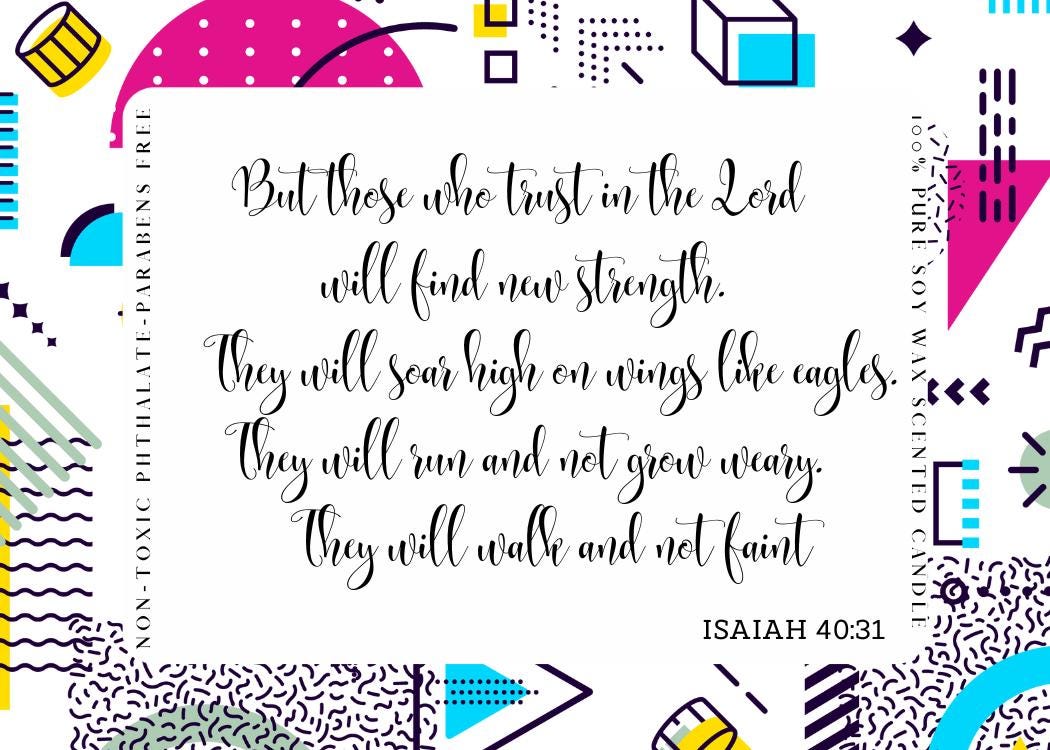 But those who trust in the Lord
will find new strength.
They will soar high on wings like eagles.
They will run and not grow weary.
They will walk and not faint
ISAIAH 40:31
NON-TOXIC PHTHALATE-PARABENS FREE
100% PURE SOY WAX SCENTED CANDLE